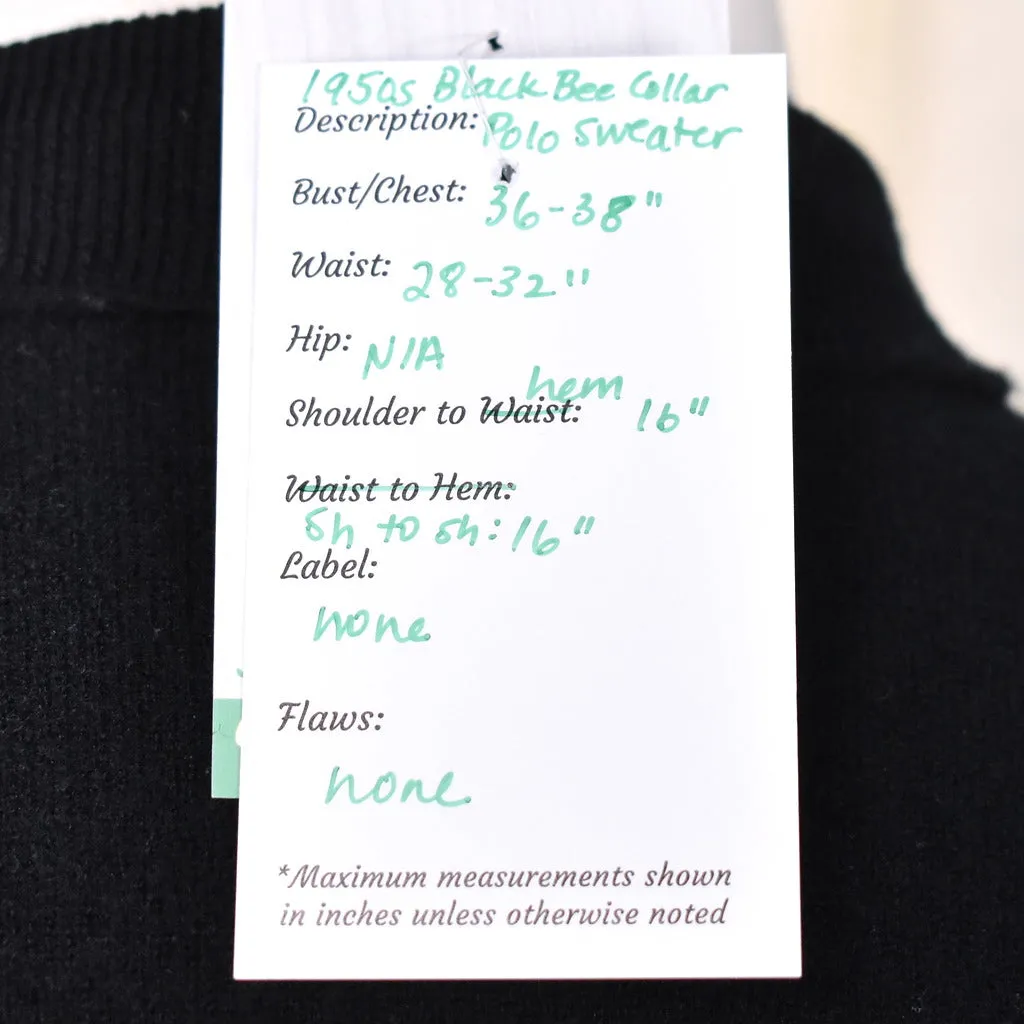 1950s Black Bee Collar
Description: Polo sweater
Bust/Chest: 36-38"
Waist: 28-32"
Hip: N/A
hem
Shoulder to Waist: 16"
Waist to Hem:
Sh to sh: 16"
Label:
none
Flaws:
none
*Maximum measurements shown
in inches unless otherwise noted